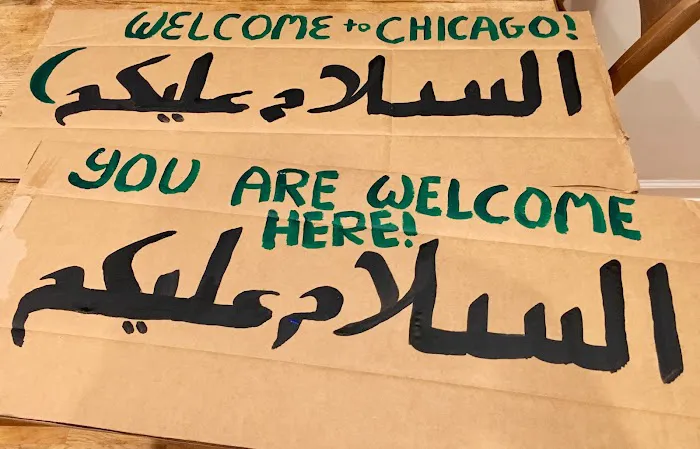 WELCOME to CHICAGO!
السلام عليكم
YOU ARE WELCOME
HERE!
السلام عليكم